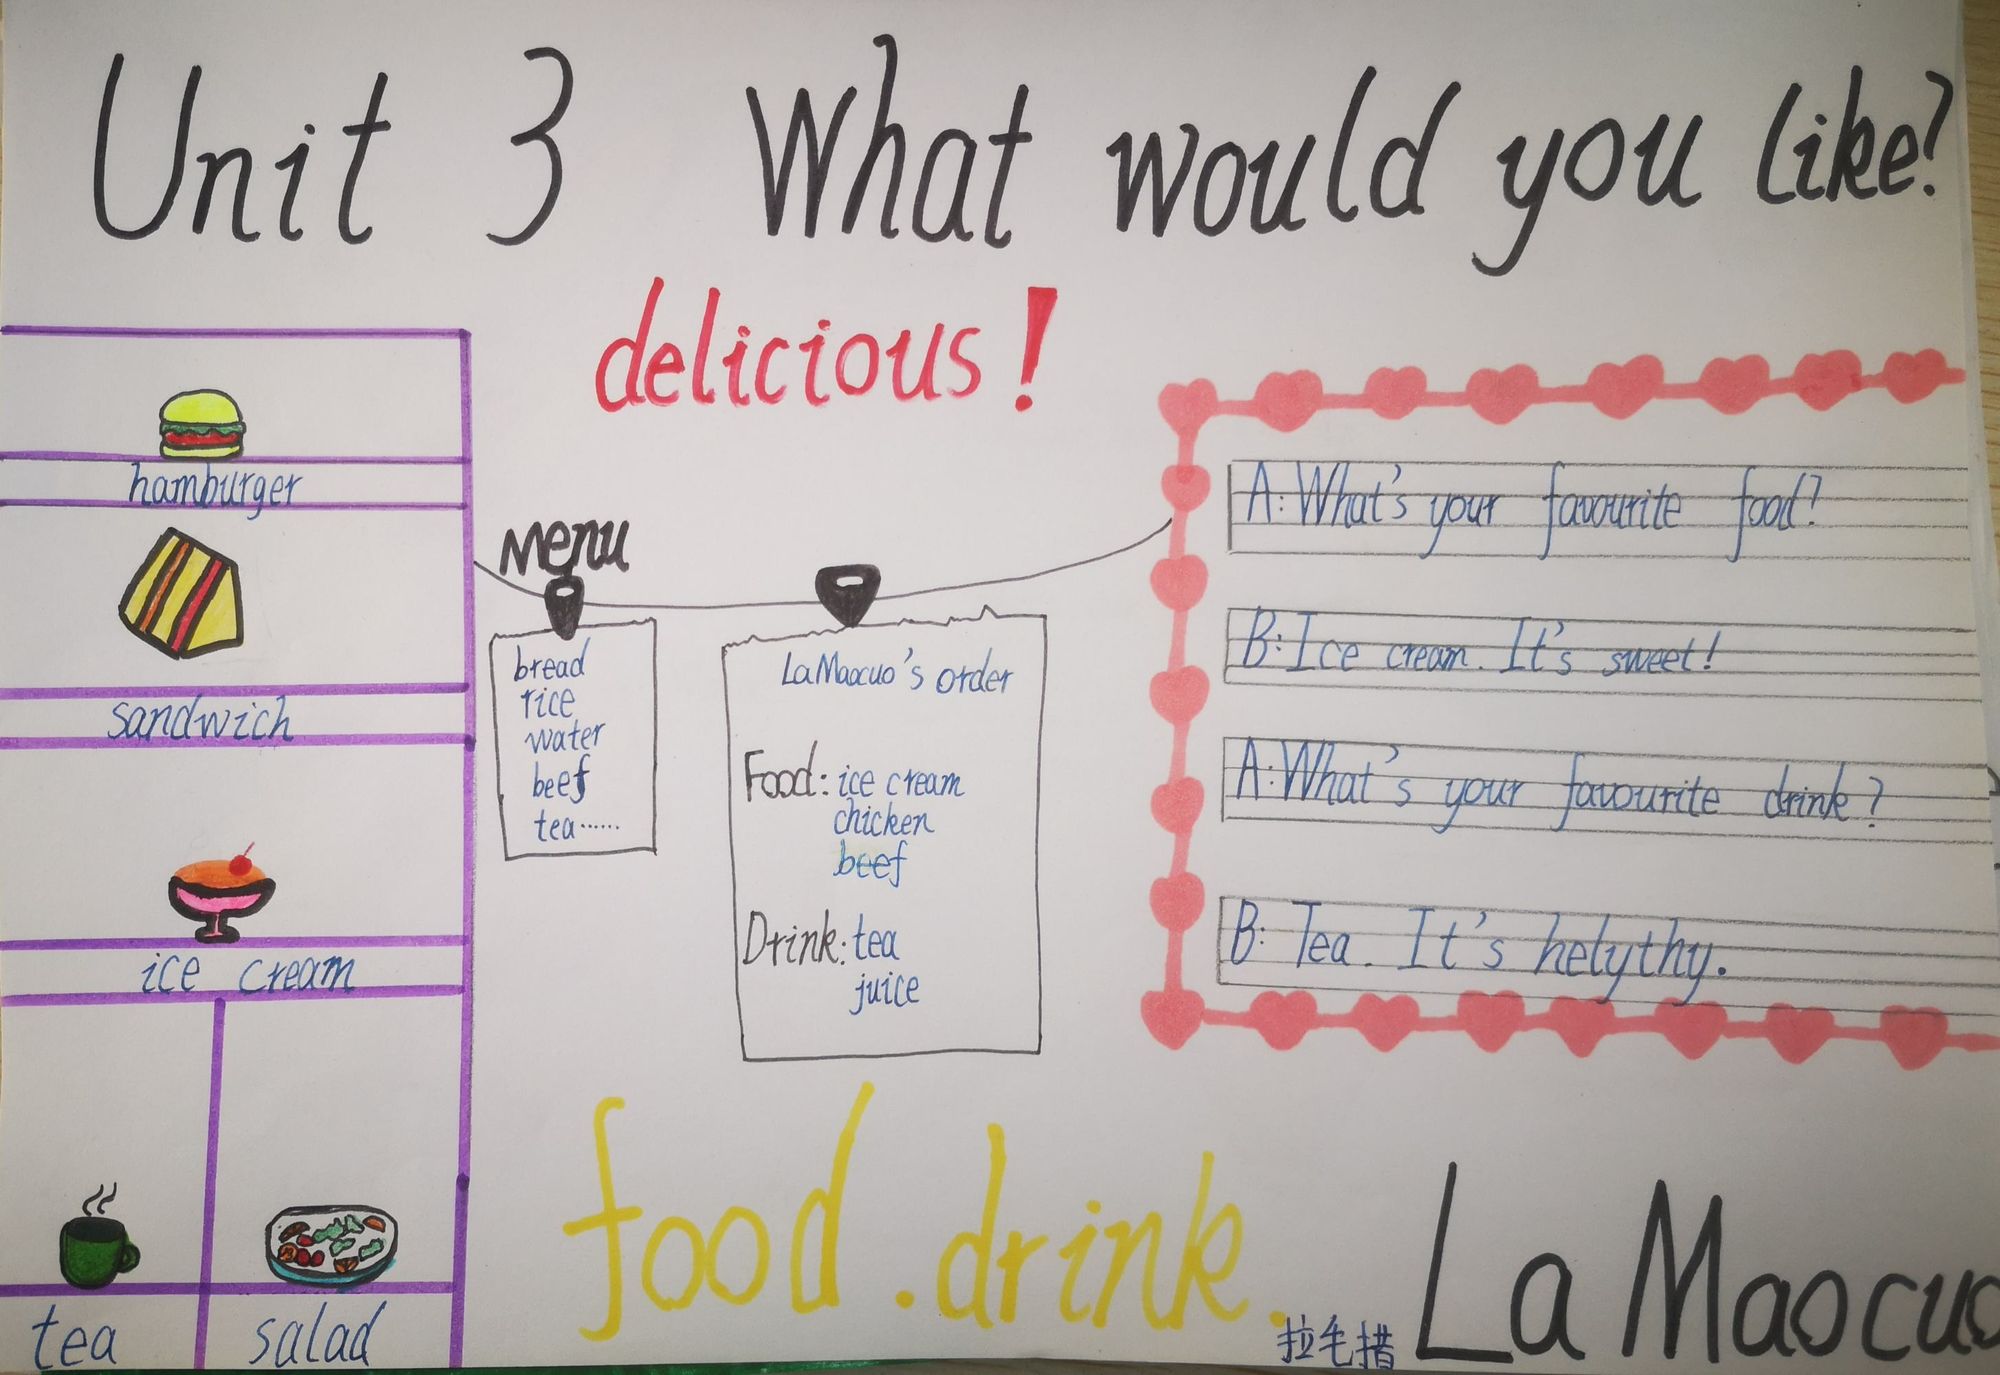 Unit 3 What would you like?
delicious!
hamburger
sandwich
ice cream
tea
salad
Menu
bread
rice
water
beef
tea……
La Maocuo's order
Food: ice cream
chicken
beef
Drink: tea
juice
A: What's your favourite food?
B: Ice cream. It's sweet!
A: What's your favourite drink?
B: Tea. It's helythy.
food.drink.
拉毛措
La Maocuo